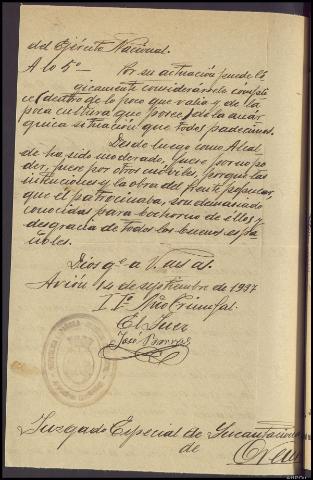 del Ejército Nacional.
A lo 5º— Por su actuación puede ló
gicamente considerársele cómpli
ce (dentro de lo poco que valía y de la
poca cultura que posee) de la anár
quica situación que todos padecimos.
Desde luego como Alcal
de ha sido moderado, fuere por no po
der, fuere por otros móviles, porque las
intenciones y la obra del frente popular,
que él patrocinaba, son demasiado
conocidas para bochorno de ellos y
desgracia de todos los buenos espa
ñoles.
Dios gº a V. m. a.
Avión 14 de septiembre de 1937
II Año Triunfal.
El Juez
José
Juzgado Especial de Incautaciones
de Orense